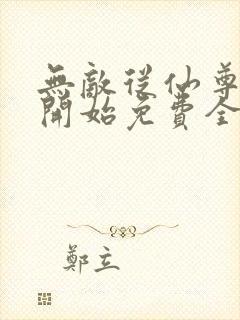 無敵從仙尊
開始免費全
鄭立